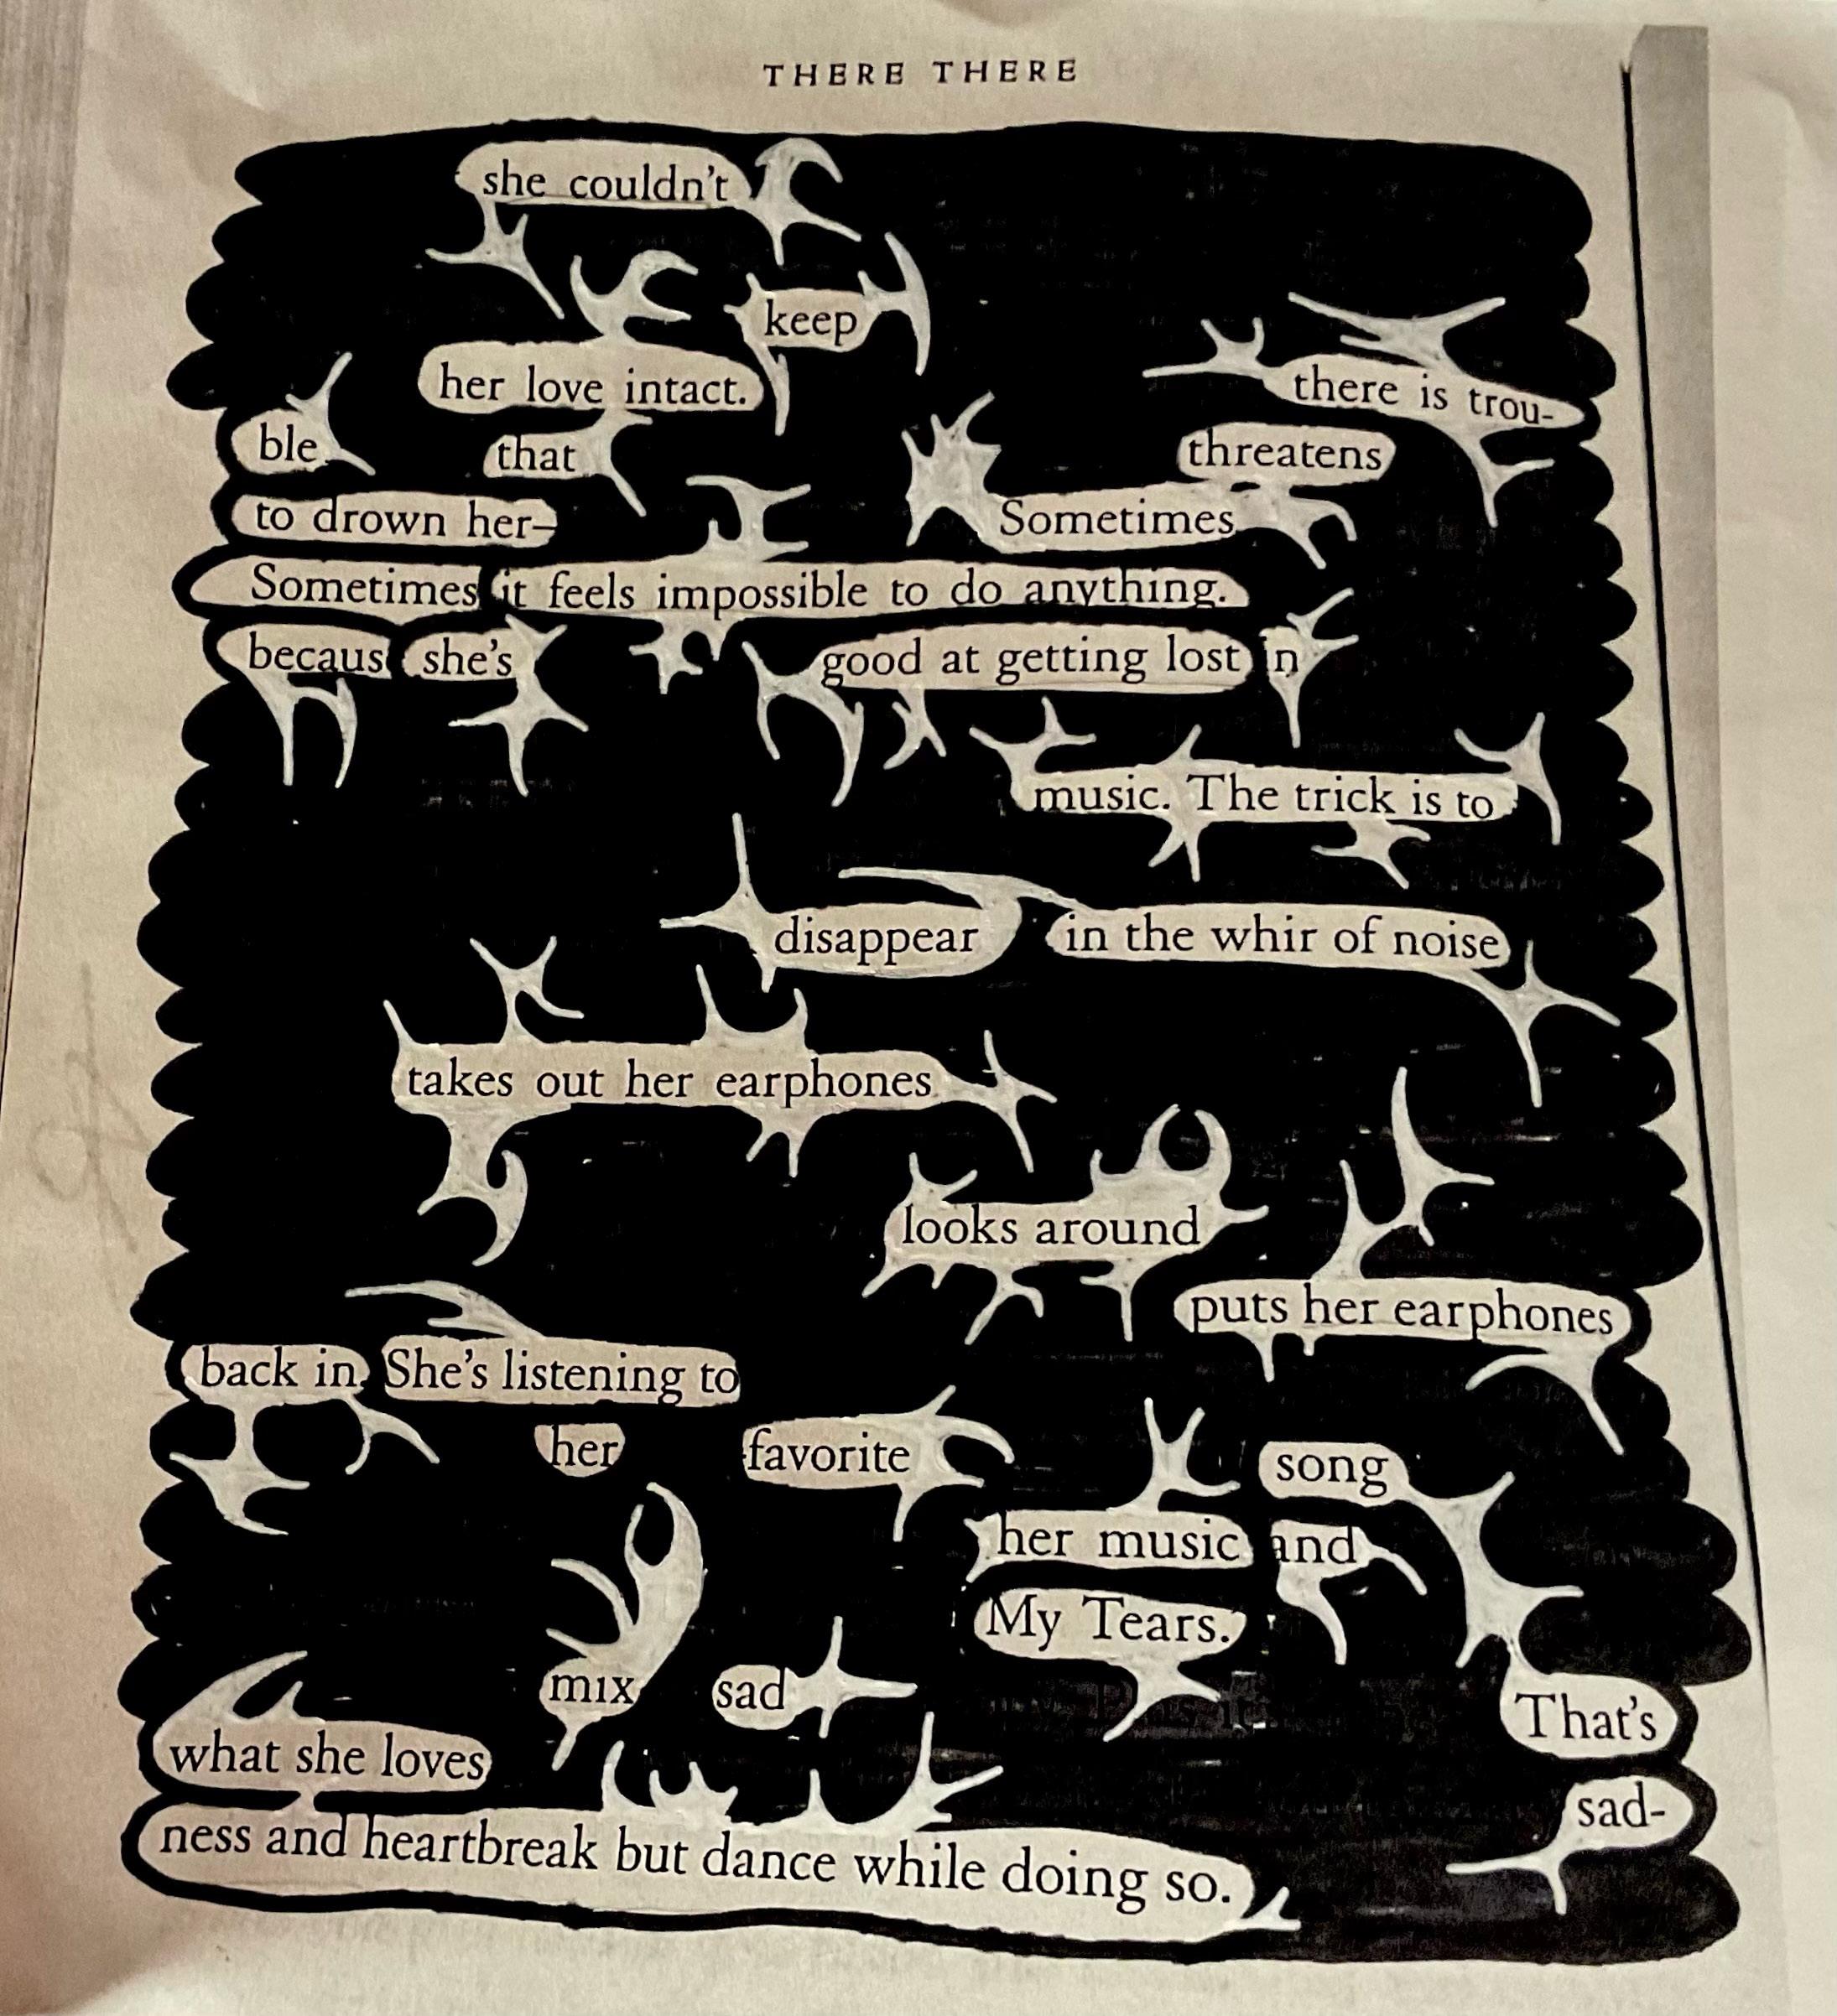 THERE THERE
she couldn't
keep
her love intact. there is trou-
ble that threatens
to drown her— Sometimes
Sometimes it feels impossible to do anything.
becaus she's good at getting lost in
music. The trick is to
disappear in the whir of noise
takes out her earphones
looks around
puts her earphones
back in. She's listening to
her favorite song
her music and
My Tears.
mix sad That's
what she loves sad-
ness and heartbreak but dance while doing so.